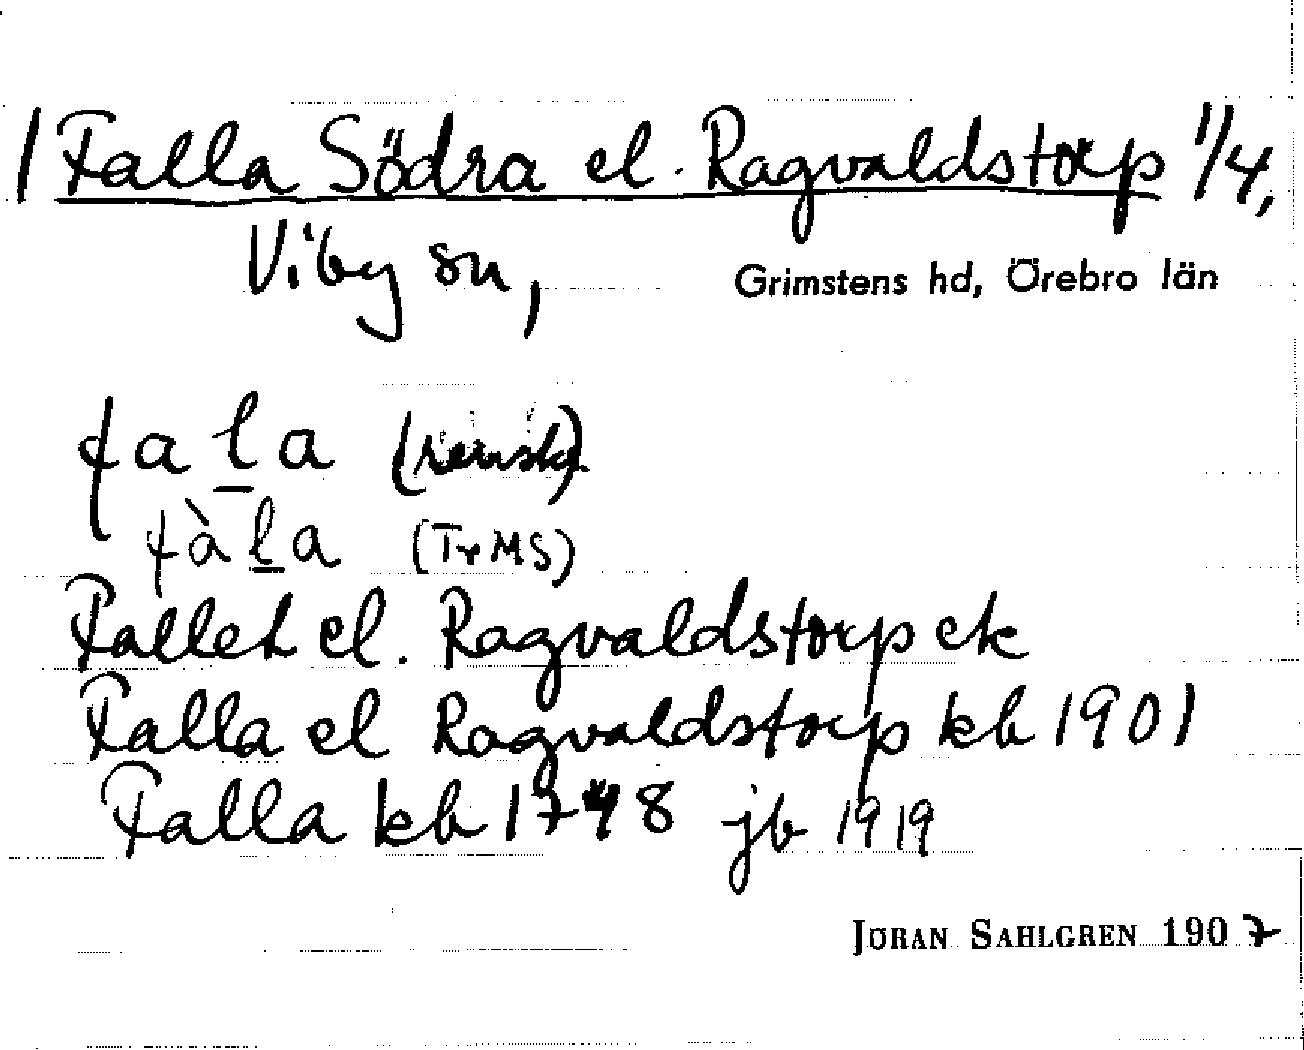 / Falla Södra el. Ragvaldstorp 1/4,
Viby sn,
Grimstens hd, Örebro län
fa̠la (rensk)
fàl̠a (TrMS)
Fallet el. Ragvaldstorp ek
Falla el Ragvaldstorp kb 1901
Falla kb 1748 jb 1919
JÖRAN SAHLGREN 1907